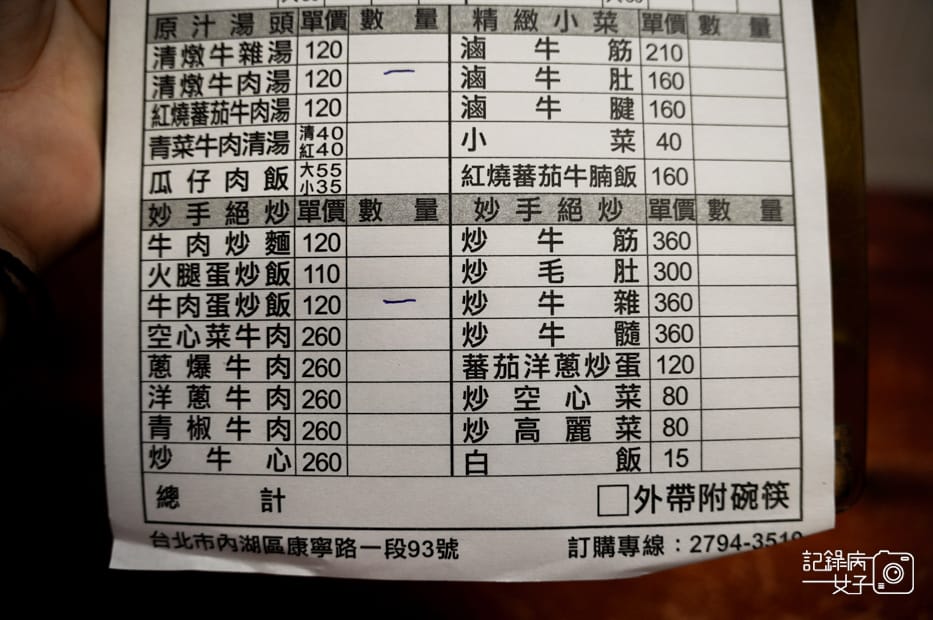 原汁湯頭 單價 數量 精緻小菜 單價 數量
清燉牛雜湯 120 滷牛筋 210
清燉牛肉湯 120 一 滷牛肚 160
紅燒蕃茄牛肉湯 120 滷牛腱 160
青菜牛肉清湯 清40 紅40 小菜 40
瓜仔肉飯 大55 小35 紅燒蕃茄牛腩飯 160
妙手絕炒 單價 數量 妙手絕炒 單價 數量
牛肉炒麵 120 炒牛筋 360
火腿蛋炒飯 110 炒毛肚 300
牛肉蛋炒飯 120 一 炒牛雜 360
空心菜牛肉 260 炒牛髓 360
蔥爆牛肉 260 蕃茄洋蔥炒蛋 120
洋蔥牛肉 260 炒空心菜 80
青椒牛肉 260 炒高麗菜 80
炒牛心 260 白飯 15
總計 □外帶附碗筷
台北市內湖區康寧路一段93號 訂購專線：2794-3519
記錄病女子